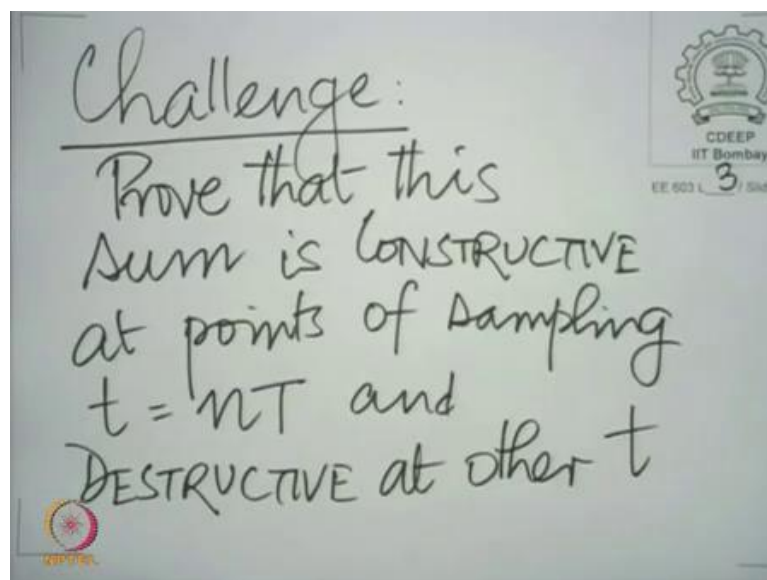 Challenge:
Prove that this
sum is CONSTRUCTIVE
at points of sampling
t = nT and
DESTRUCTIVE at other t
CDEEP
IIT Bombay
EE 603 L 3 / Slid
NPTEL